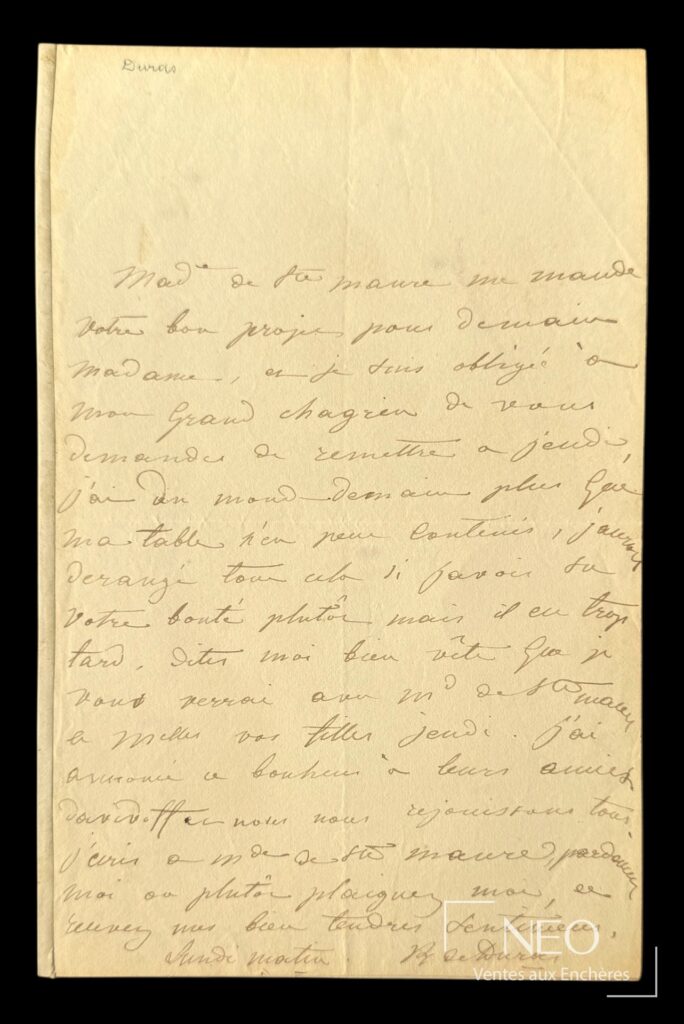 Duras
Mad^e de Ste maure me mande
votre bon projet pour demain
madame, et je suis obligée à
mon grand chagrin de vous
demander de remettre a jeudi,
j'ai du monde demain plus que
ma table n'en peut contenir, j'aurois
derangé tout cela si j'avois su
votre bonté plutôt mais il est trop
tard, dites moi bien vite que je
vous verrai avec m^d de Ste maure
et melles vos filles jeudi. j'ai
annoncé ce bonheur à leurs amies
davidoff et nous nous rejouissons tous,
j'ecris a m^de de Ste maure, pardonnez
moi ou plutôt plaignez moi, et
recevez mes bien tendres sentimens,
Lundi matin. de Duras
NEO
Ventes aux Enchères